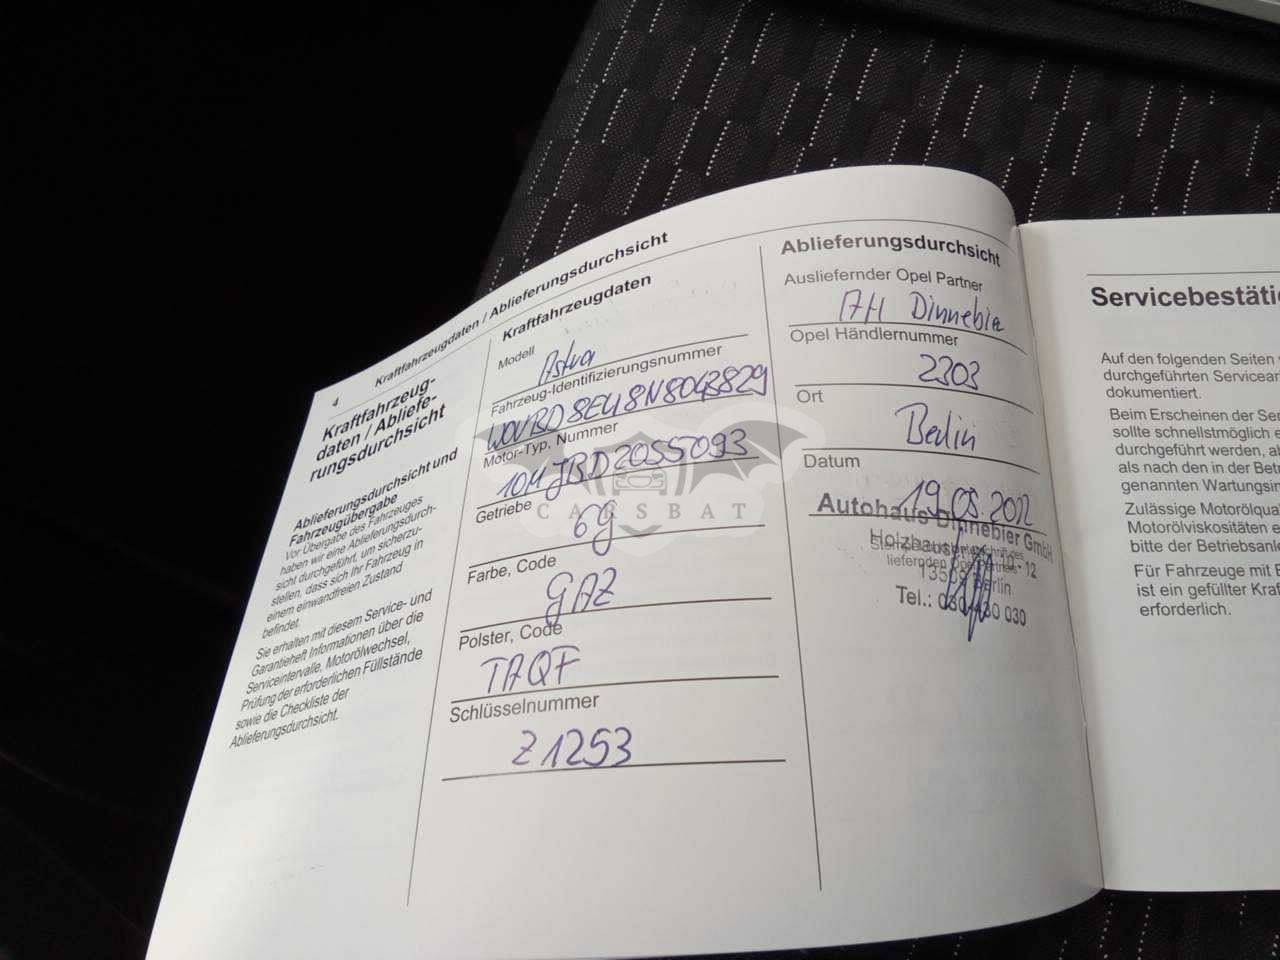 4
Kraftfahrzeugdaten / Ablieferungsdurchsicht
Kraftfahrzeug-
daten / Abliefe-
rungsdurchsicht
Ablieferungsdurchsicht und
Fahrzeugübergabe
Vor Übergabe des Fahrzeuges
haben wir eine Ablieferungsdurch-
sicht durchgeführt, um sicherzu-
stellen, dass sich Ihr Fahrzeug in
einem einwandfreien Zustand
befindet.
Sie erhalten mit diesem Service- und
Garantieheft Informationen über die
Serviceintervalle, Motorölwechsel,
Prüfung der erforderlichen Füllstände
sowie die Checkliste der
Ablieferungsdurchsicht.
Kraftfahrzeugdaten
Modell
Astra
Fahrzeug-Identifizierungsnummer
W0VBD8EU8N8043829
Motor-Typ, Nummer
10MJBD2055093
Getriebe
6g
Farbe, Code
GAZ
Polster, Code
TAQF
Schlüsselnummer
Z1253
CARSBAT
Ablieferungsdurchsicht
Ausliefernder Opel Partner
AH Dinnebier
Opel Händlernummer
2303
Ort
Berlin
Datum
19.08.2022
Autohaus Dinnebier GmbH
12
13509 Berlin
Tel.: 030 030
Servicebestäti
Auf den folgenden Seiten
durchgeführten Servicear
dokumentiert.
Beim Erscheinen der Ser
sollte schnellstmöglich e
durchgeführt werden, ab
als nach den in der Betr
genannten Wartungsin
Zulässige Motorölqua
Motorölviskositäten e
bitte der Betriebsanle
Für Fahrzeuge mit E
ist ein gefüllter Kraf
erforderlich.